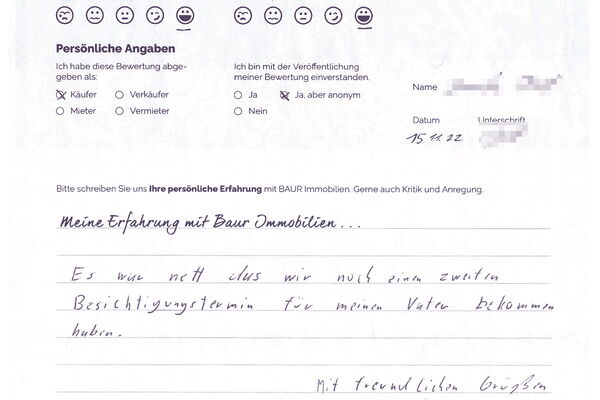 Persönliche Angaben
Ich habe diese Bewertung abge-
geben als:
Käufer Verkäufer
Mieter Vermieter
Ich bin mit der Veröffentlichung
meiner Bewertung einverstanden.
Ja Ja, aber anonym
Nein
Name
Datum Unterschrift
15.11.22
Bitte schreiben Sie uns Ihre persönliche Erfahrung mit BAUR Immobilien. Gerne auch Kritik und Anregung.
Meine Erfahrung mit Baur Immobilien...
Es war nett das wir noch einen zweiten
Besichtigungstermin für meinen Vater bekommen
haben.
Mit freundlichen Grüßen